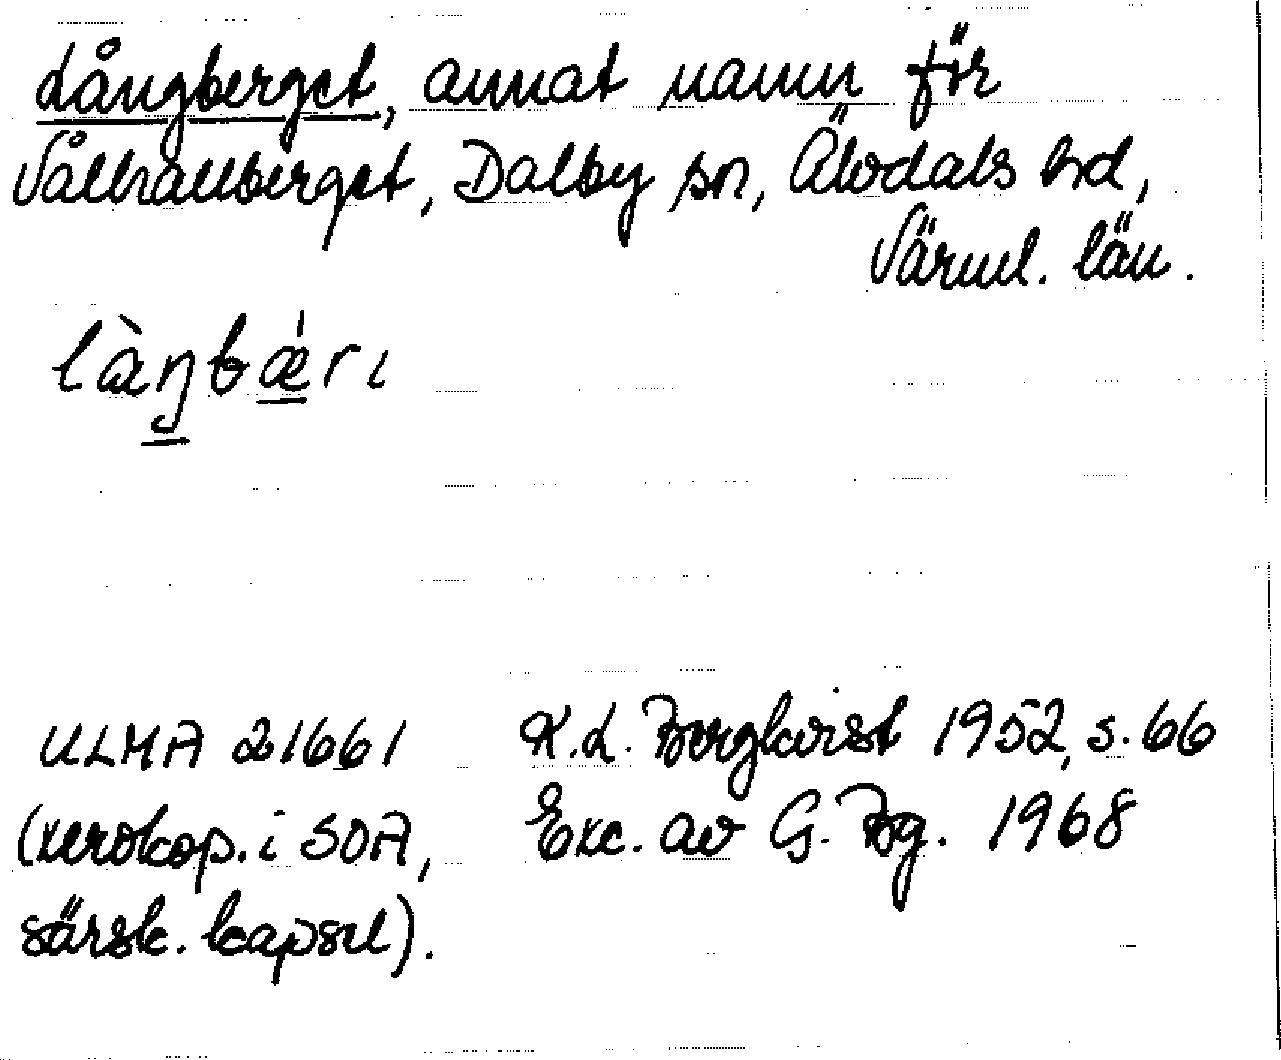 Långberget, annat namn för
Vålhallberget, Dalby sn, Älvdals hd,
Värml. län.
làŋbǽrɩ
ULMA 21661
(xerokop. i SOA,
särsk. kapsel).
K.L. Bergkvist 1952, s. 66
Exc. av G. Bg. 1968